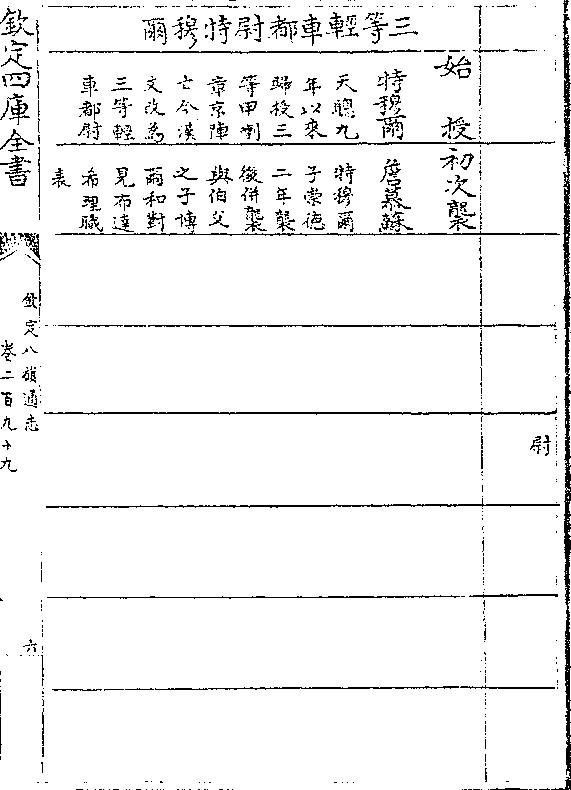 尉
三等輕車都尉特穆爾
始授
特穆爾
天聰九
年以來
歸授三
等甲喇
章京陣
亡今漢
文改為
三等輕
車都尉
初次襲
詹慕蘇
特穆爾
子崇德
二年襲
後併襲
與伯父
之子博
爾和對
見布達
希理職
表
欽定四庫全書
欽定八旗通志
卷二百九十九
六